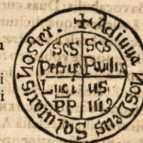 ✠ Adiuua nos Deus Salutaris noster.
Scs Scs
Petrus Paulus
Luci us
PP